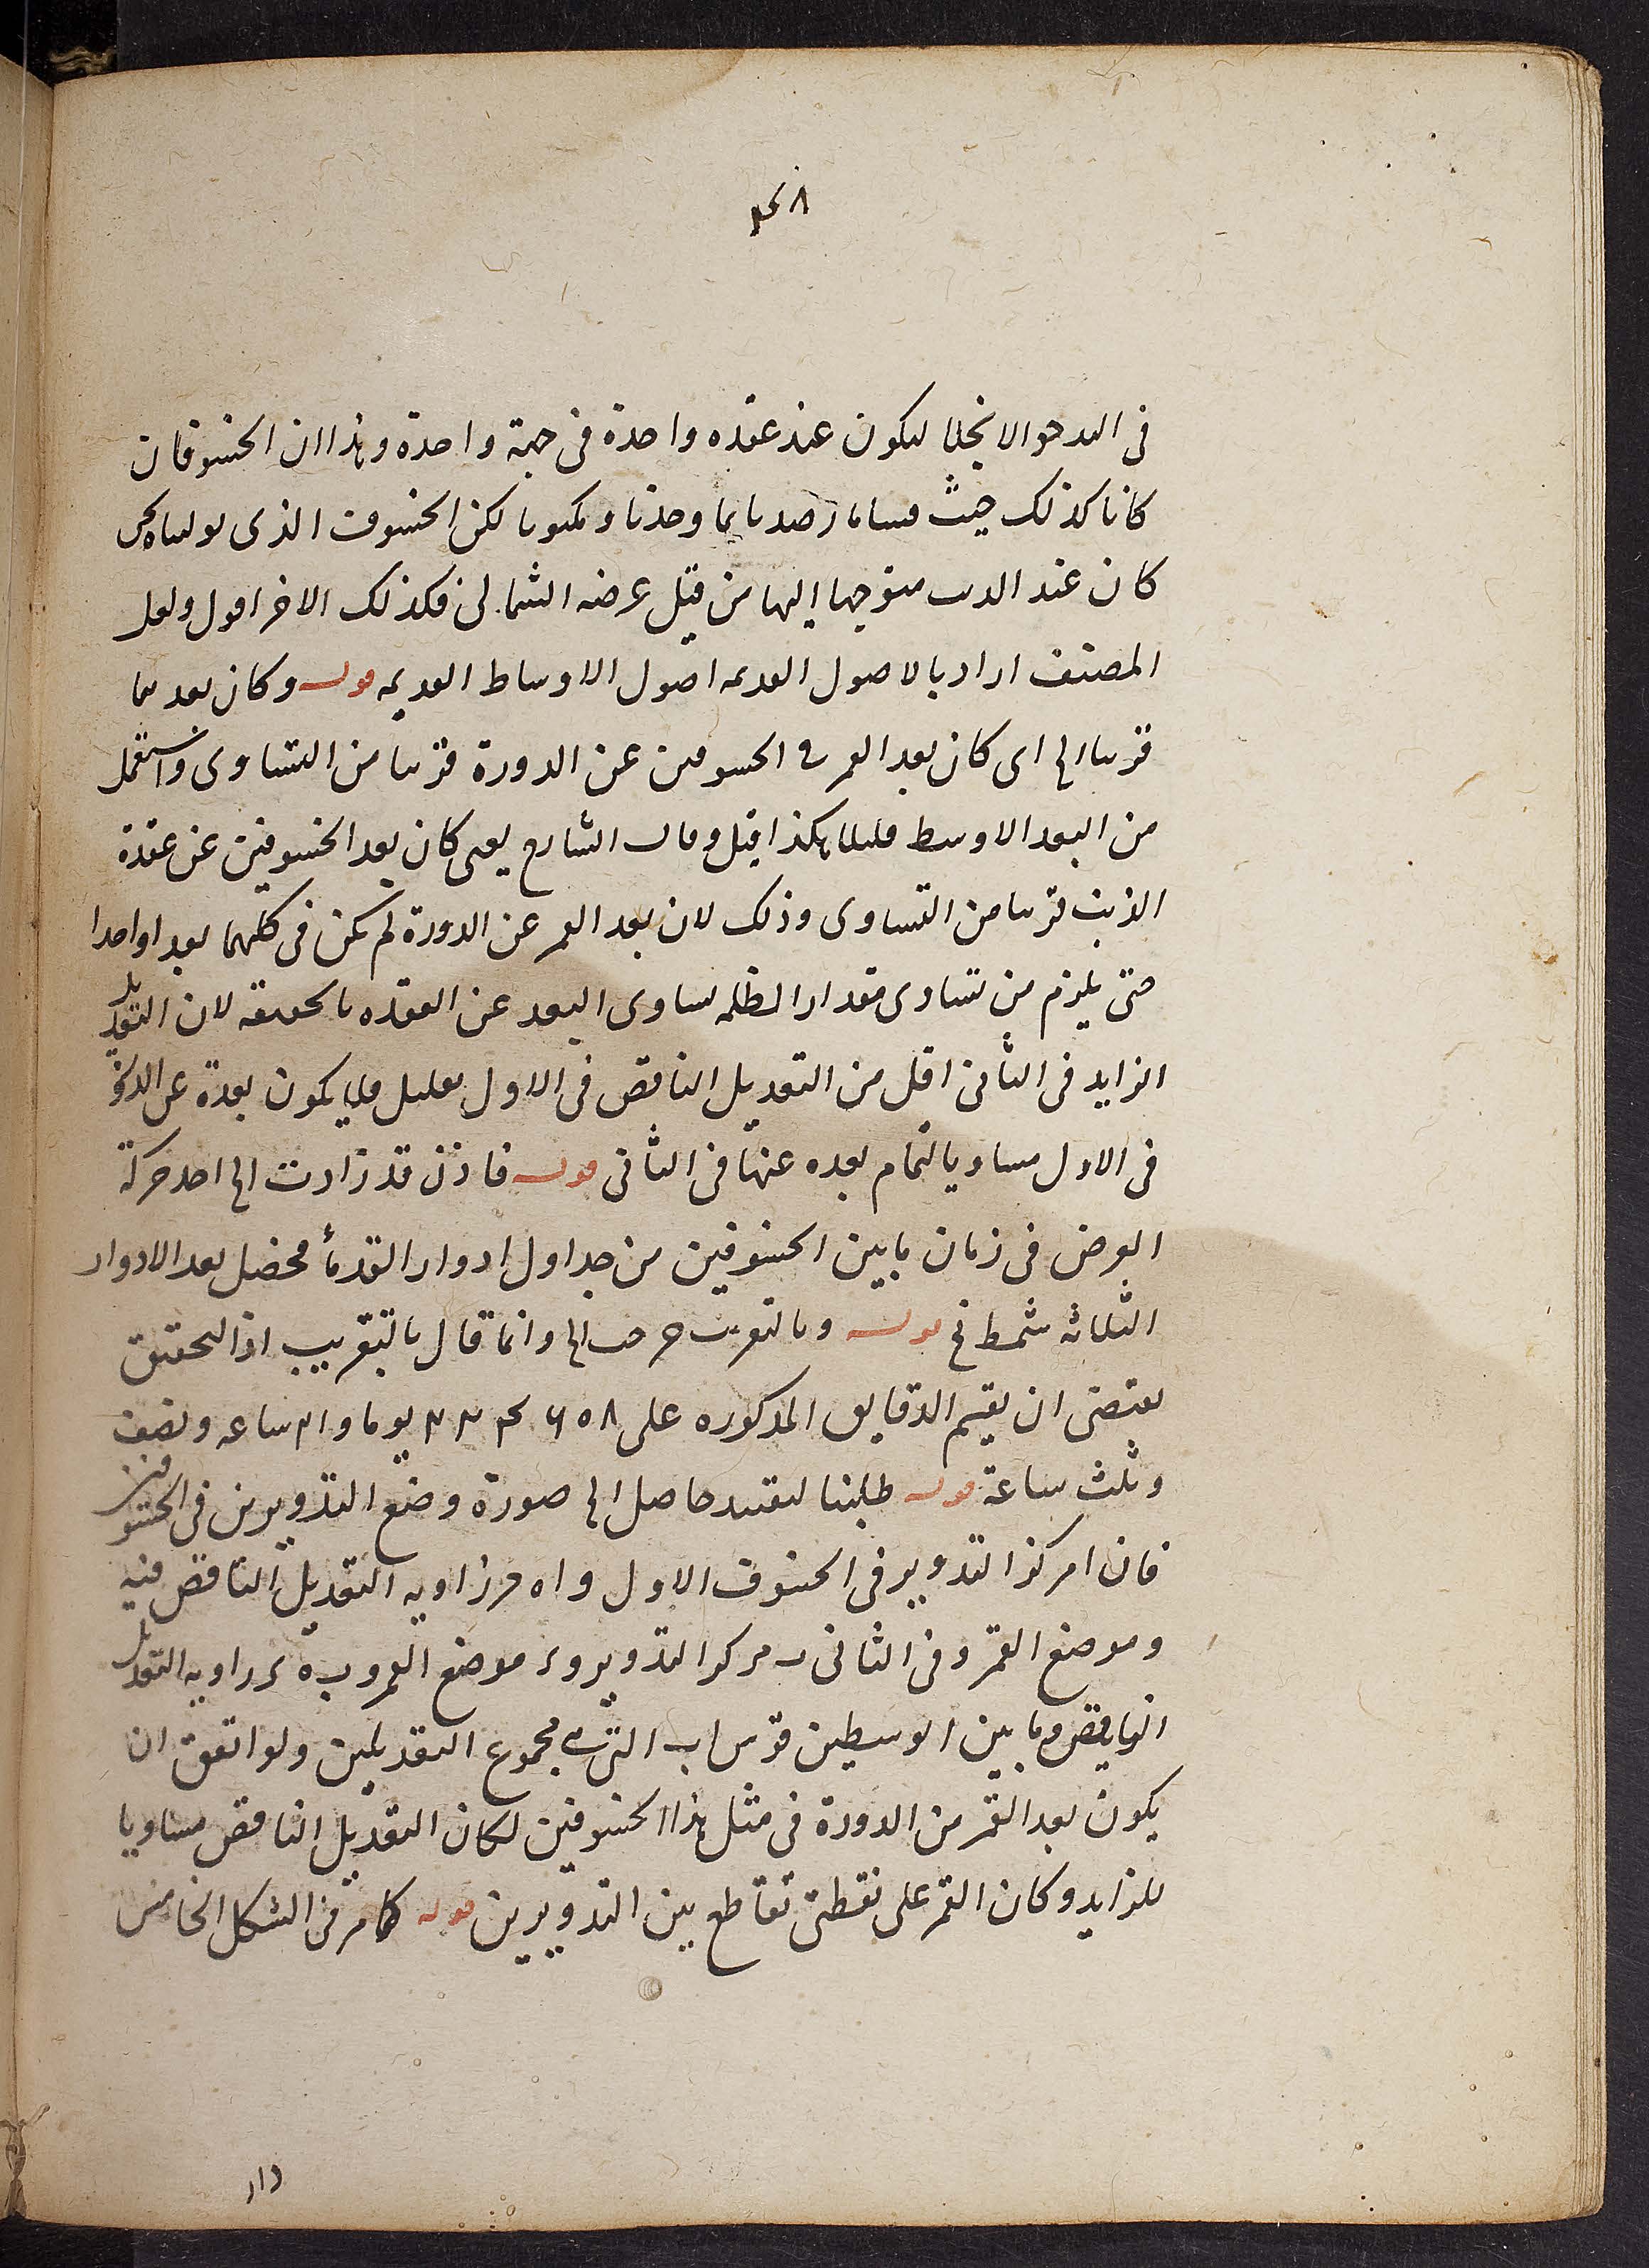 في البدو والانجلا ليكون عند عقده واحدة في جهة واحدة وهذا ان الخسوفان
كانا كذلك حيث رصدناهما وجدنا لكن الخسوف الذى
كان عند الذنب متوجها اليها من قبل عرضه الشمالى فكذلك الاخر اقول ولعل
المصنف اراد بالاصول القديمه اصول الاوساط القديمه قوله وكان بعدهما
قريبا الى اى كان بعد القمر في الخسوفين عن الدورة قريبا من التساوى واستعمل
من البعد الاوسط قليلا هكذا قيل وقال الشارح يعنى كان بعد الخسوفين عن عقدة
الذنب قريبا من التساوى وذلك لان بعد القمر عن الدورة لم يكن فى كليهما بعدا واحدا
حتى يلزم من تساوى مقدار الظلمه تساوى البعد عن العقده بالحقيقه لان التعديل
الزايد فى الثانى اقل من التعديل الناقص فى الاول بقليل فلا يكون بعده عن الذروة
فى الاول مساويا لتمام بعده عنها فى الثانى قوله فاذن قد زادت الى احد حركة
العرض فى زمان ما بين الخسوفين من جداول ادوار القدمأ محصل بعد الادوار
الثلاثه شمط نح قوله وبالتقريب الى وانما قال بالتقريب اذ التحقيق
يقتضى ان يقسم الدقايق المذكوره على يوما و ساعه ونصف
وثلث ساعة قوله طلبنا حاصل الى صورة وضع التدويرين فى الخسوفين
فان ا مركز التدوير فى الخسوف الاول و ا ه ح زاويه التعديل الناقص فيه
وموضع القمر وفى الثانى ب مركز التدوير و ر موضع القمر و ب ه ر زاويه التعديل
الناقص وما بين الوسطين قوس اب التى هى مجموع التعديلين ولو اتفق ان
يكون بعد القمر من الدورة فى مثل هذا الخسوفين لكان التعديل الناقص مساويا
للزايد وكان القمر على نقطتى تقاطع بين التدويرين قوله كما مر فى الشكل الخامس